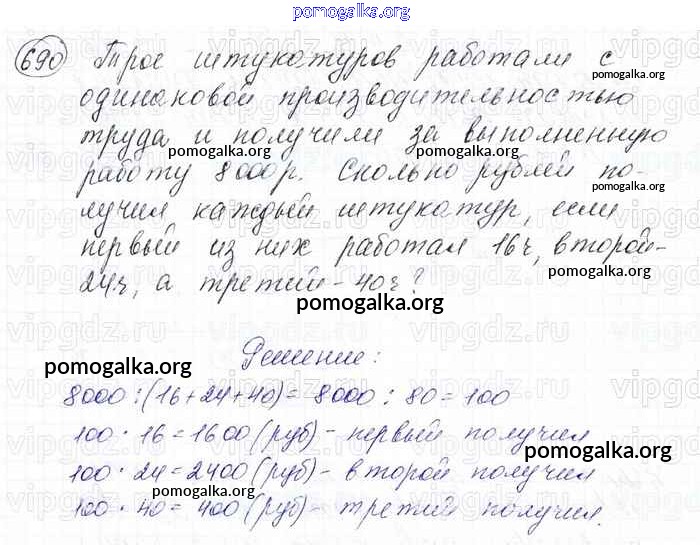 pomogalka.org
690 Трое штукатуров работали с
pomogalka.org
одинаковой производительностью
труда и получили за выполненную
pomogalka.org pomogalka.org
работу 8000 р. Сколько рублей по-
pomogalka.org
лучил каждый штукатур, если
первый из них работал 16 ч, второй -
pomogalka.org
24 ч, а третий - 40 ч?
pomogalka.org
Решение:
pomogalka.org
8000 : (16+24+40) = 8000 : 80 = 100
100 · 16 = 1600 (руб) - первый получил
pomogalka.org
100 · 24 = 2400 (руб) - второй получил
pomogalka.org
100 · 40 = 400 (руб) - третий получил.
pomogalka.org